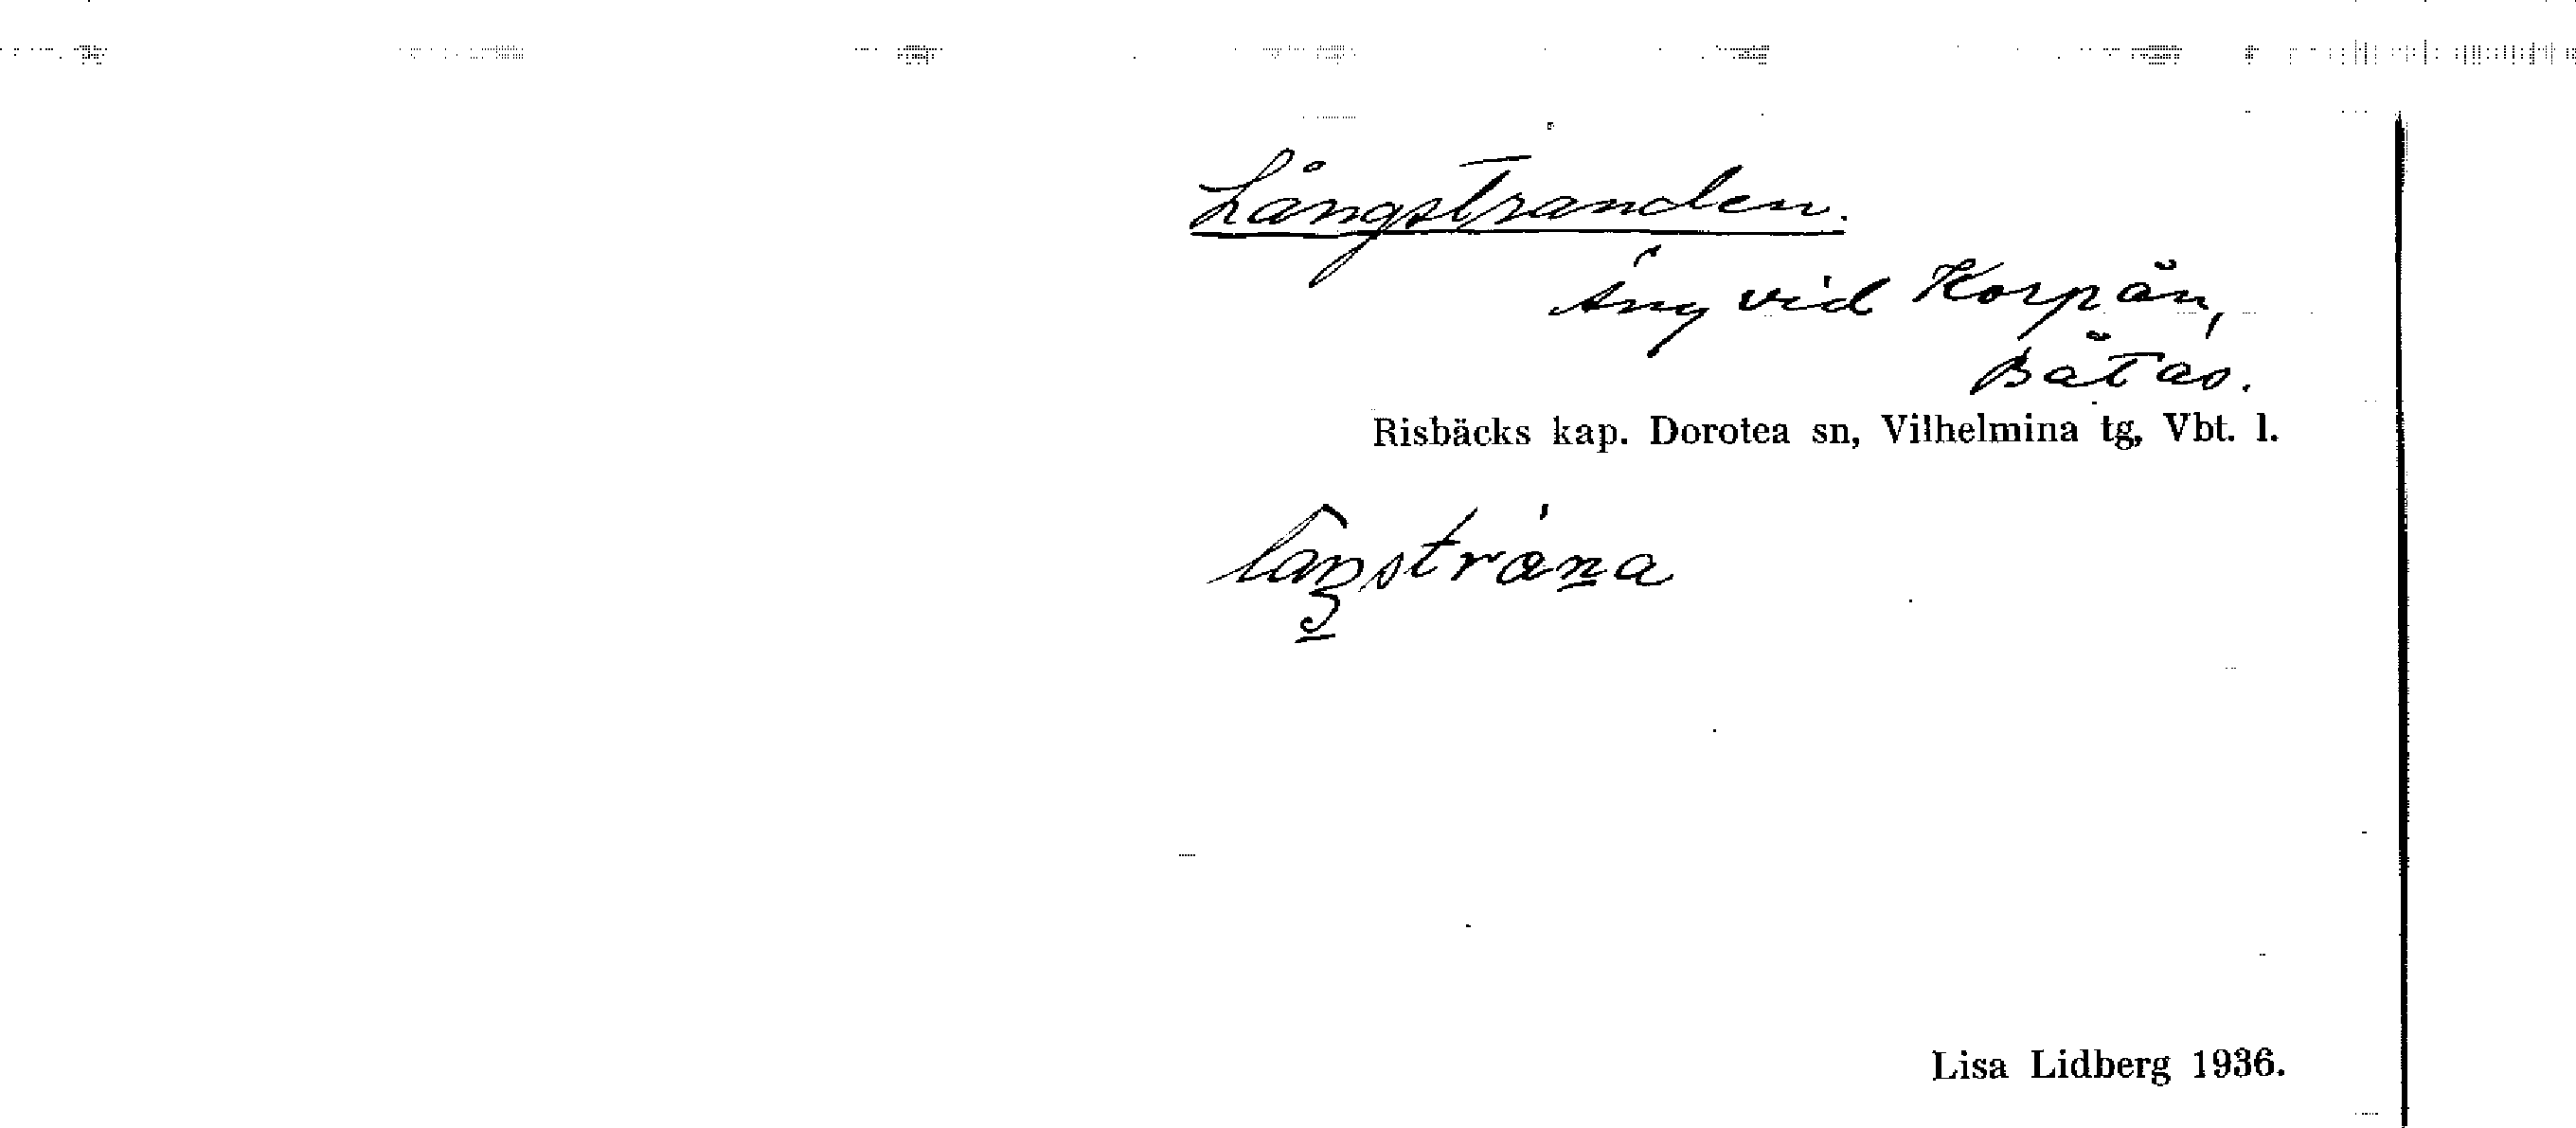 Långstranden.
Äng vid Korpån,
Båtas.
Risbäcks kap. Dorotea sn, Vilhelmina tg, Vbt. l.
Lisa Lidberg 1936.